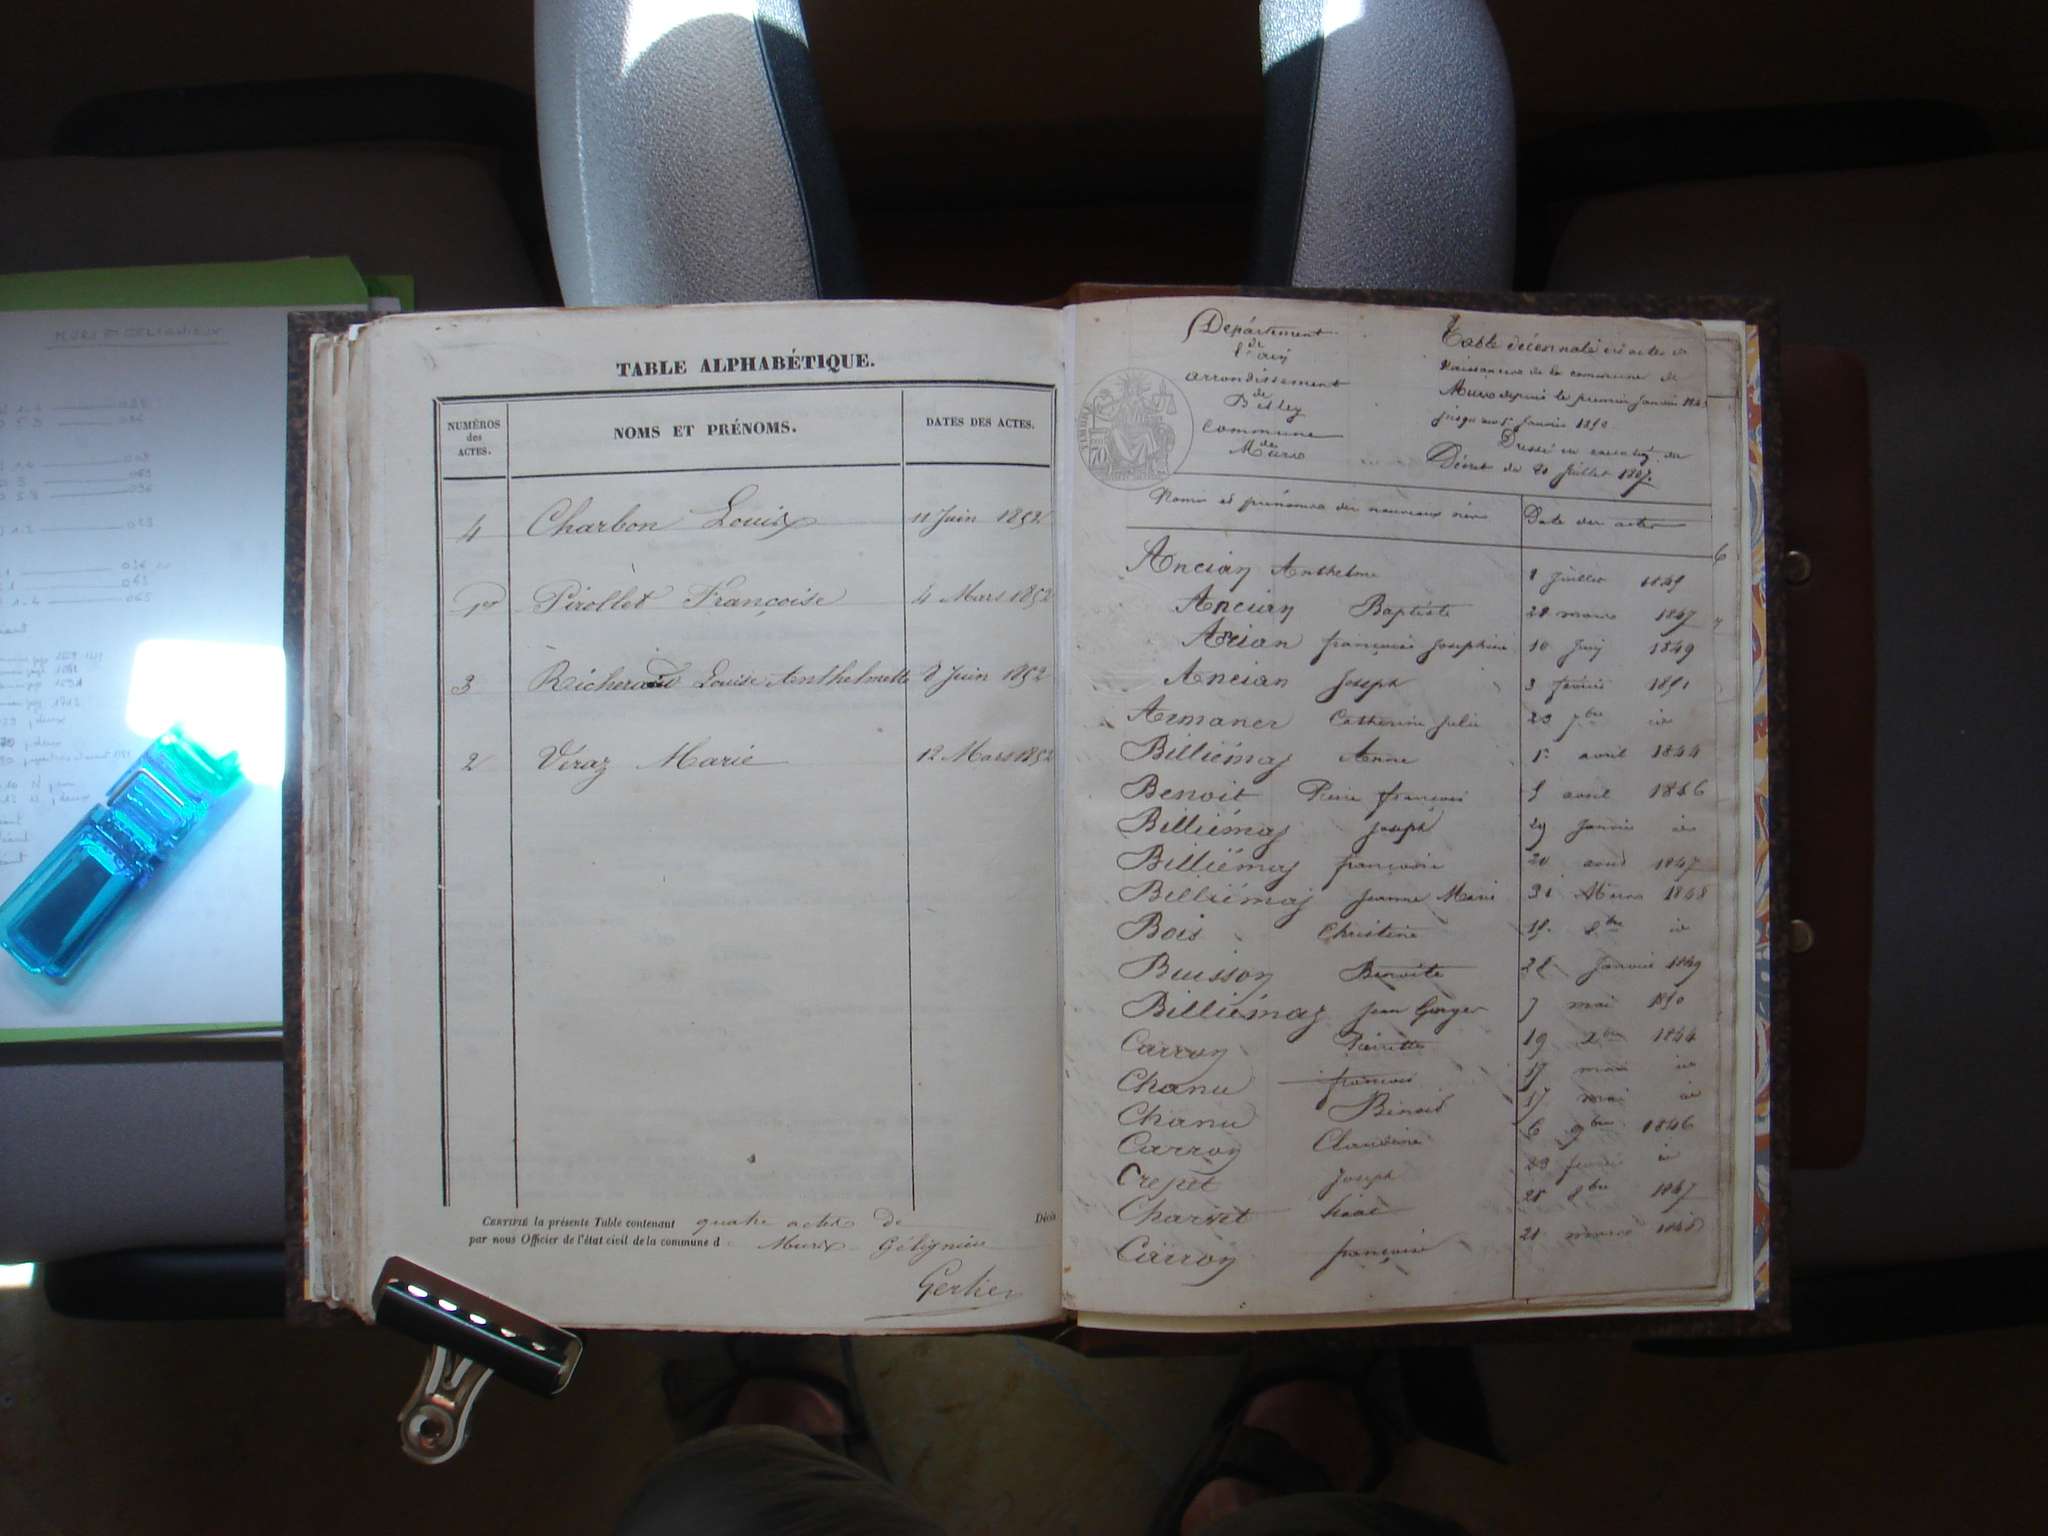 TABLE ALPHABÉTIQUE.
NUMÉROS des ACTES. NOMS ET PRÉNOMS. DATES DES ACTES.
4 Charbon Louis 11 Juin 1852
1er Pirollet Françoise 4 Mars 1852
3 Richerand Louise Anthelmette 8 Juin 1852
2 Veraz Marie 12 Mars 1852
CERTIFIÉ la présente Table contenant quatre actes de Décès
par nous Officier de l'état civil de la commune d Murs Gélignieu
Gerlier
Département
de
l'ain
arrondissement
de
Belley
Commune
de
Murs
Table décennale des actes de
Naissances de la commune de
Murs depuis le premier Janvier
jusqu'au 1er Janvier
Dressé en execution du
Décret du 20 Juillet 1807.
Noms et prénoms des nouveaux nés Date des actes
Ancian Anthelme 8 Juillet 1845
Ancian Baptiste 28 mars 1847
Ancian françoise Josephine 10 Juin 1849
Ancian Joseph 3 février 1851
Armaner Catherine Julie 23 7bre id
Billiémaz Anne 1er avril 1844
Benoit Pierre françois 5 avril 1846
Billiémaz Joseph 29 Janvier id
Billiémaz françoise 20 août 1847
Billiémaz Jeanne Marie 31 Mars 1848
Bois Christine 18 8bre id
Buisson Benoite 28 Janvier 1849
Billiémaz Jean 7 mai 1850
Carron Pierrette 19 xbre 1844
Chanu françois 17 mai id
Chanu Benoit 17 mai id
Carron Claudine 6 9bre 1846
Crepet Joseph 23 février id
Charvet Isaac 28 8bre 1847
Carron françoise 21 mars 1848